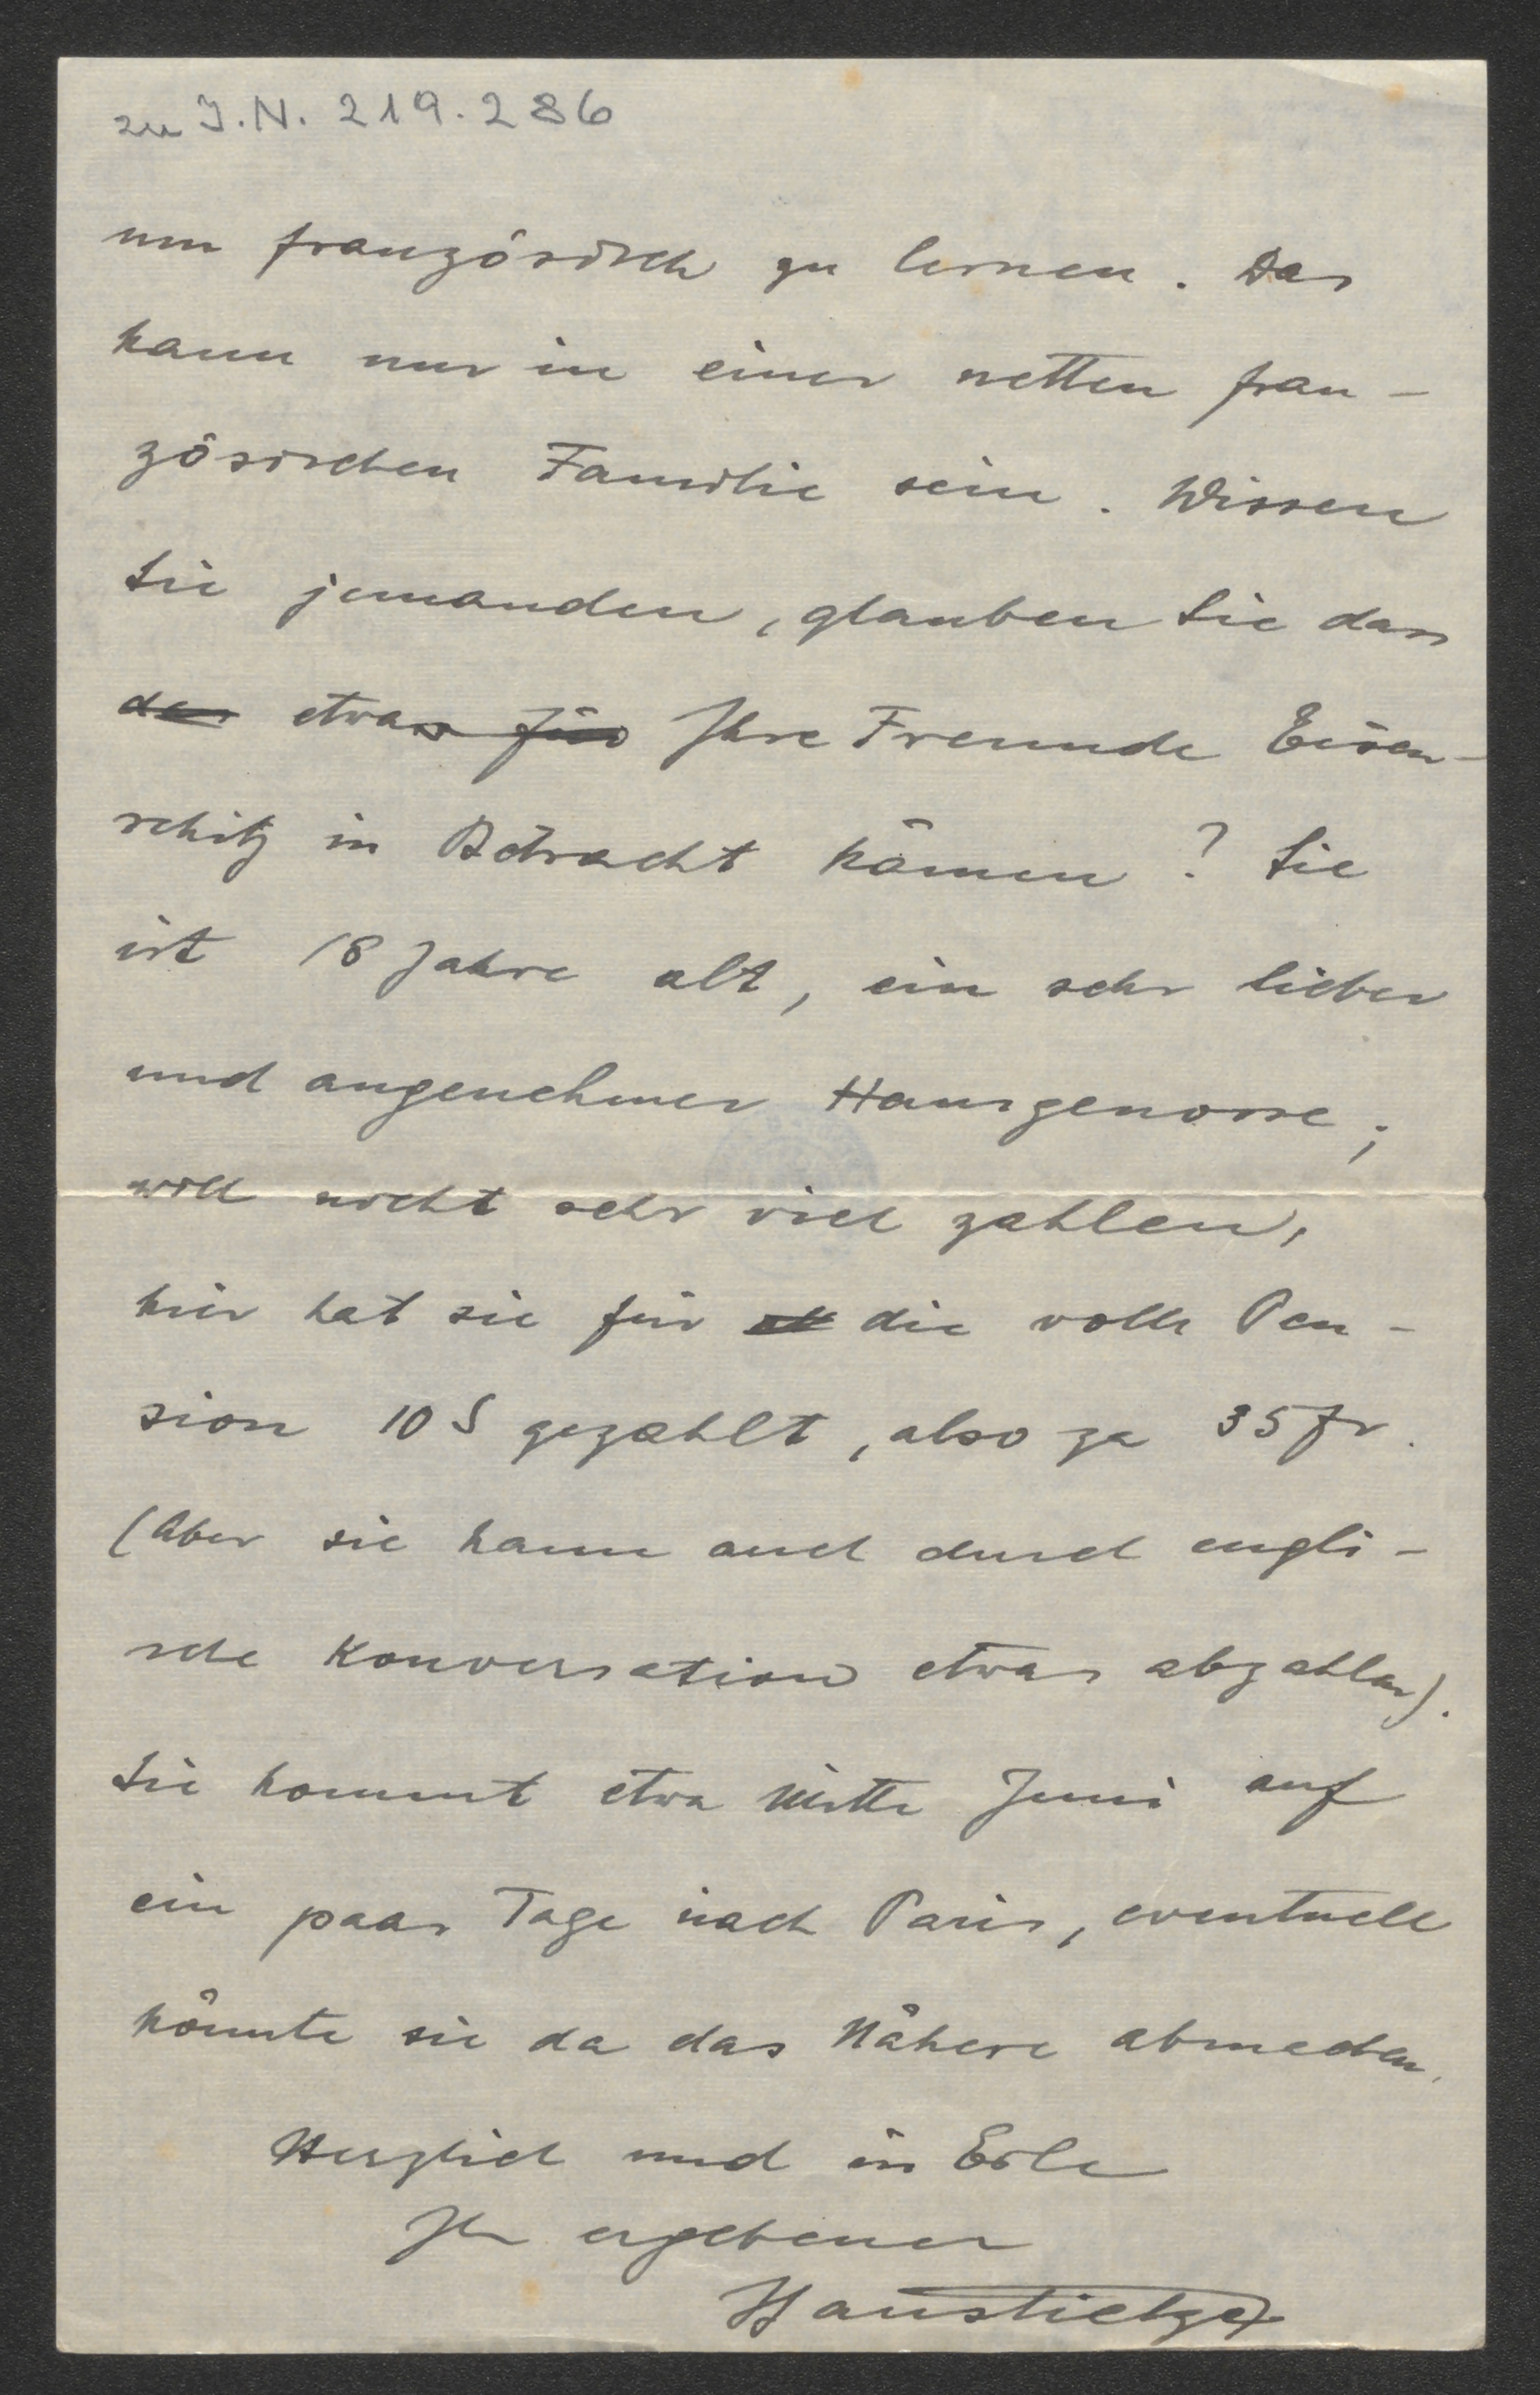 zu I.N. 219.286
um französisch zu lernen. Das
kann nur in einer netten fran-
zösischen Familie sein. Wissen
Sie jemanden, glauben Sie dass
das etwas für Ihre Freunde Eisen-
schitz in Betracht kämen? Sie
ist 18 Jahre alt, ein sehr lieber
und angenehmer Hausgenosse;
will nicht sehr viel zahlen,
hier hat sie für die volle Pen-
sion 10 S gezahlt, also za 35 fr.
(Aber sie kann auch durch engli-
sche Konversation etwas abzahlen).
Sie kommt etwa Mitte Juni auf
ein paar Tage nach Paris, eventuell
könnte sie da das Nähere abmachen.
Herzlich und in Eile
Ihr ergebener
Hanstietze